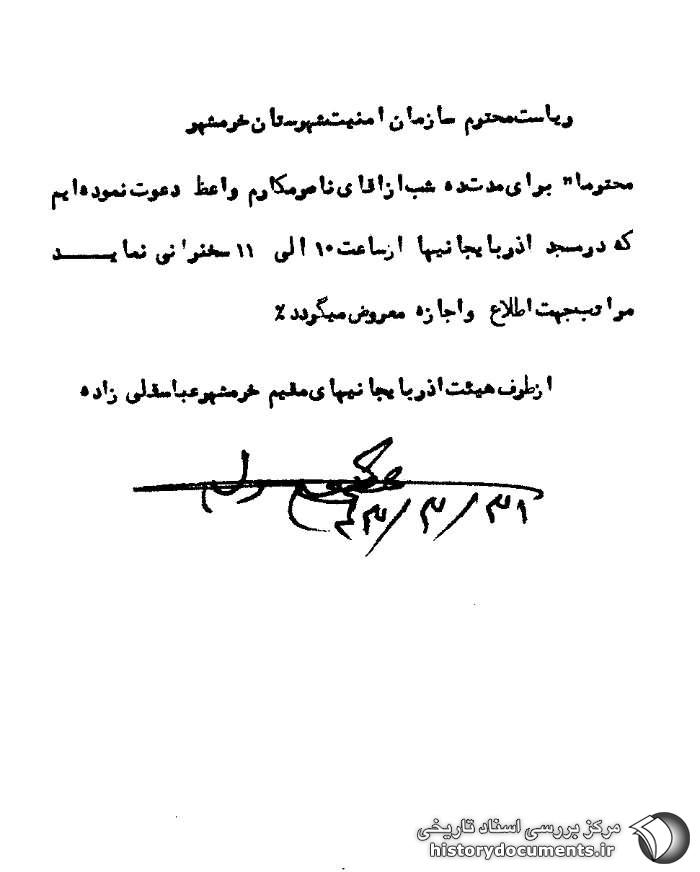 ریاست محترم سازمان امنیت شهرستان خرمشهر
محترما" برای مدت ده شب از اقای ناصر مکارم واعظ دعوت نموده ایم
که در مسجد اذربایجانیها از ساعت ۱۰ الی ۱۱ سخنرانی نماید
مراتب جهت اطلاع و اجازه معروض میگردد ٪
از طرف هیئت اذربایجانیهای مقیم خرمشهر عباسقلی زاده
مرکز بررسی اسناد تاریخی
historydocuments.ir